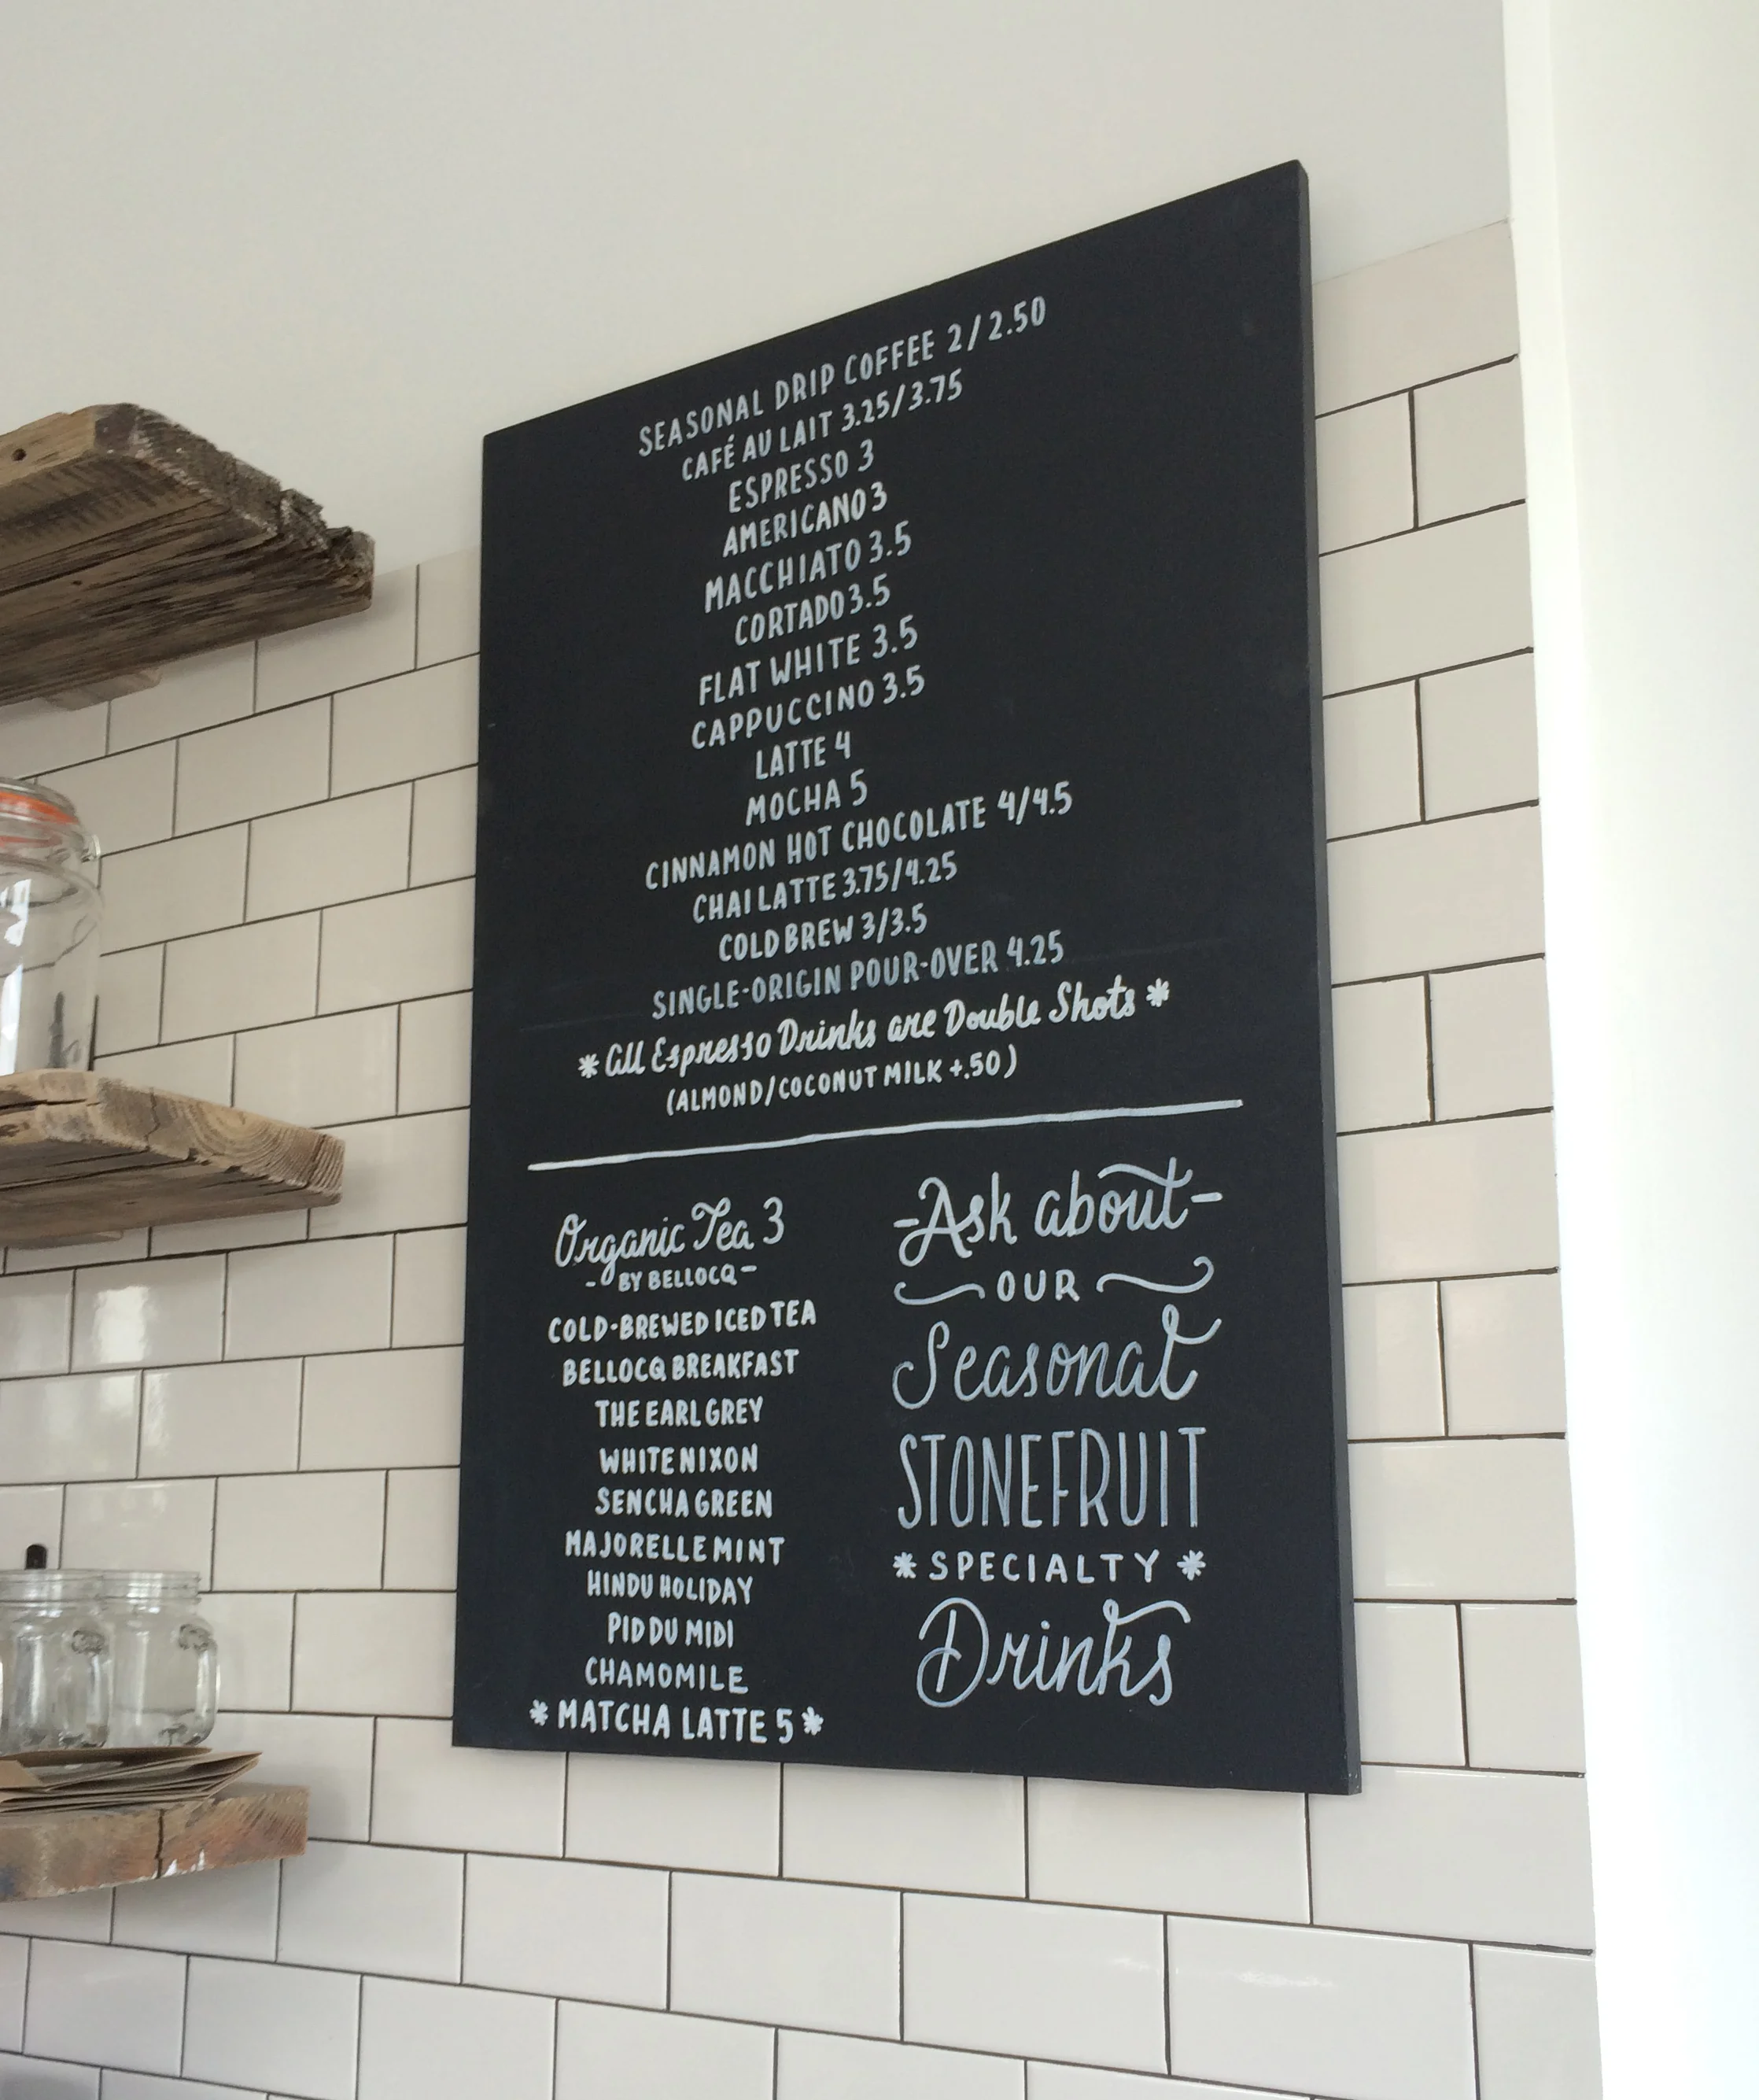 SEASONAL DRIP COFFEE 2/2.50
CAFÉ AU LAIT 3.25/3.75
ESPRESSO 3
AMERICANO 3
MACCHIATO 3.5
CORTADO 3.5
FLAT WHITE 3.5
CAPPUCCINO 3.5
LATTE 4
MOCHA 5
CINNAMON HOT CHOCOLATE 4/4.5
CHAI LATTE 3.75/4.25
COLD BREW 3/3.5
SINGLE-ORIGIN POUR-OVER 4.25
* All Espresso Drinks are Double Shots *
(ALMOND/COCONUT MILK +.50)
Organic Tea 3
- BY BELLOCQ -
COLD-BREWED ICED TEA
BELLOCQ BREAKFAST
THE EARL GREY
WHITE NIXON
SENCHA GREEN
MAJORELLE MINT
HINDU HOLIDAY
PID DU MIDI
CHAMOMILE
* MATCHA LATTE 5 *
- Ask about -
OUR
Seasonal
STONEFRUIT
* SPECIALTY *
Drinks